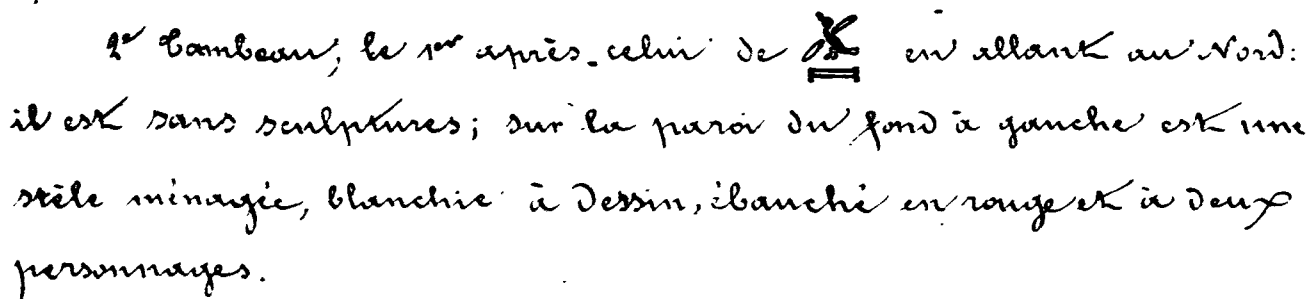 2e Tombeau, le 1er après celui de en allant au Nord:
il est sans sculptures; sur la paroi du fond à gauche est une
stèle ménagée, blanchie à dessin, ébauché en rouge et à deux
personnages.